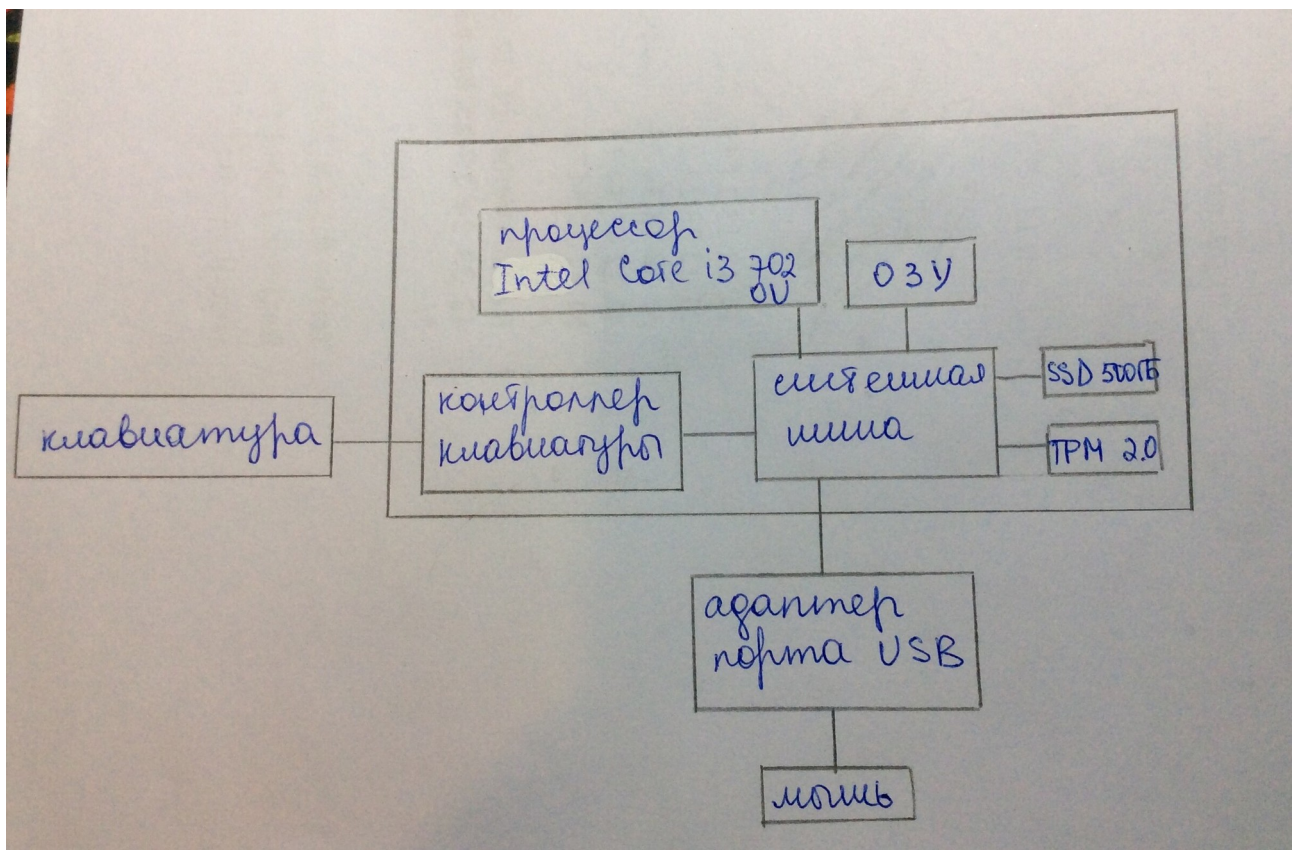 процессор
Intel Core i3 702
0U
ОЗУ
клавиатура
контроллер
клавиатуры
системная
шина
SSD 500ГБ
TPM 2.0
адаптер
порта USB
мышь